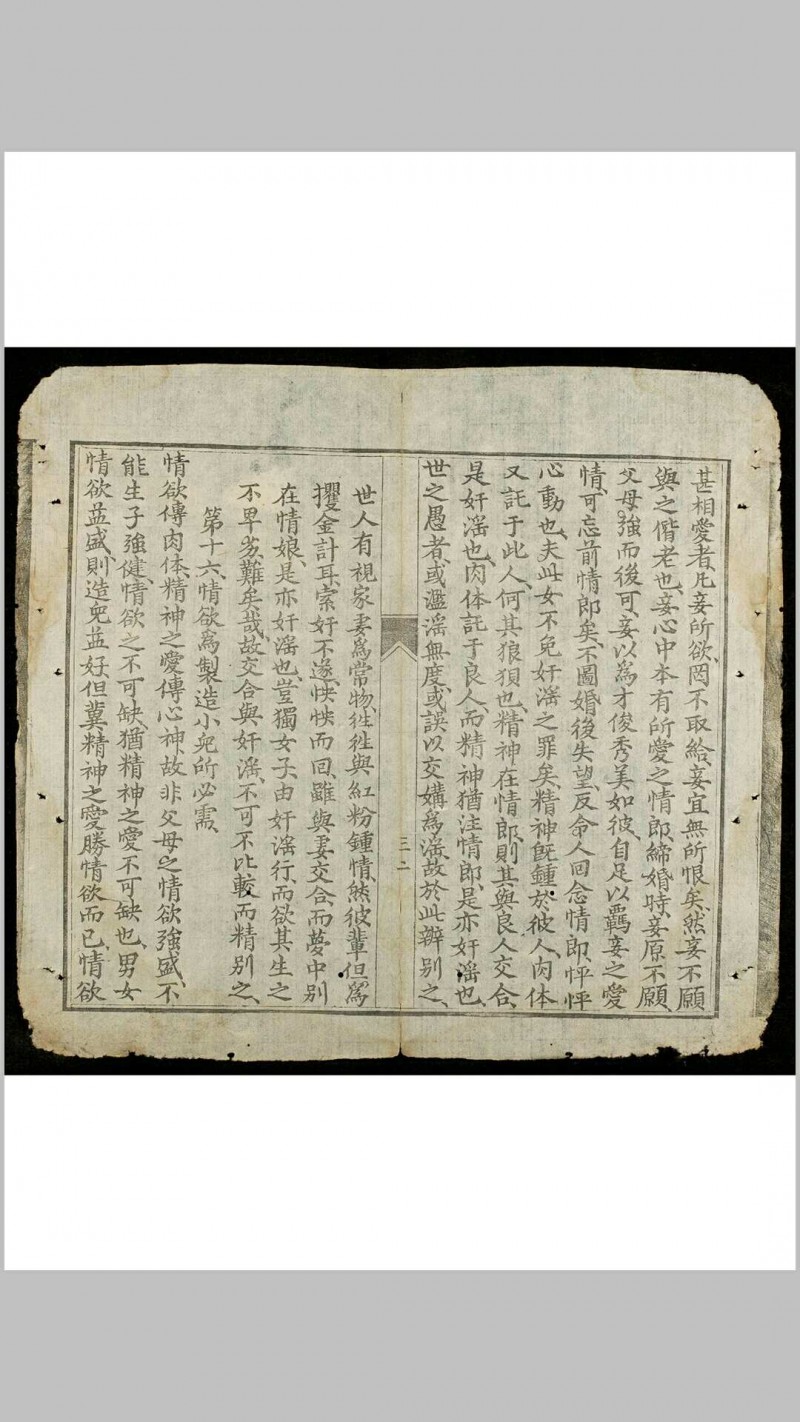 甚相愛者、凡妾所欲、罔不取給、妾宜無所恨矣、然妾不願
與之偕老也、妾心中本有所愛之情郎、締婚時、妾原不願、
父母強而後可、妾以爲才俊秀美如彼、自足以羈妾之愛
情、可忘前情郎矣、不圖婚後失望、反命人回念情郎、怦怦
心動也、夫此女不免奸淫之罪矣、精神既鍾於彼人、肉体
又託于此人、何其狼狽也、精神在情郎、則其與良人交合、
是奸淫也、肉体託于良人、而精神猶注情郎、是亦奸淫也、
世之愚者、或濫淫無度、或誤以交媾爲淫、故於此辨別之、
三二
世人有視家妻爲常物、徃徃與紅粉鍾情、然彼輩但爲
攫金計耳、索奸不遂、怏怏而回、雖與妻交合、而夢中別
在情娘、是亦奸淫也、豈獨女子、由奸淫行、而欲其生之
不卑劣、難矣哉、故交合與奸淫、不可不比較而精別之、
第十六、情欲爲製造小兒所必需、
情欲傳肉体、精神之愛傳心神、故非父母之情欲強盛、不
能生子強健、情欲之不可缺、猶精神之愛不可缺也、男女
情欲益盛、則造兒益好、但冀精神之愛勝情欲而已、情欲